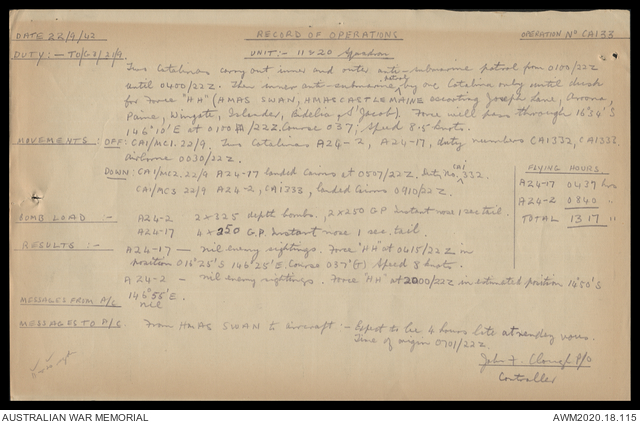 DATE 22/9/42 RECORD OF OPERATIONS OPERATION No CA133
DUTY:- TO/G2/21/9. UNIT:- 11 & 20 Squadron
Two Catalinas carry out inner and outer anti-submarine patrol from 0100/22Z
until 0400/22Z. Then inner anti-submarine patrol by one Catalina only until dusk
for Force "HH" (HMAS SWAN, HMAS CASTLEMAINE escorting Joseph Lane, Anora,
Paine, Wingate, Islander, Bidelia, St Jacob). Force will pass through 16°54'S
146°10'E at 0100 /22Z. Course 037, speed 8.5 knots.
MOVEMENTS: OFF: CA1/MC1. 22/9. Two Catalinas A24-2, A24-17, duty numbers CA1332, CA1333
Airborne 0030/22Z
DOWN: CA1/MC2. 22/9 A24-17 landed Cairns at 0507/22Z. Duty No. CA1332.
CA1/MC3 22/9 A24-2, CA1333, landed Cairns 0910/22Z.
FLYING HOURS
A24-17 0437 hrs
A24-2 0840 "
TOTAL 1317 "
BOMB LOAD:- A24-2 2 x 325 depth bombs. 2 x 250 GP Instant nose 1 sec tail.
A24-17 4 x 250 G.P. Instant nose 1 sec. tail.
RESULTS:- A24-17 — nil enemy sightings. Force "HH" at 0415/22Z in
position 016°25'S 146°25'E. Course 037°(T) Speed 8 knots.
A24-2 - nil enemy sightings. Force "HH" at 2000/22Z in estimated position 16°50'S
146°55'E.
MESSAGES FROM A/C nil
MESSAGES TO A/C From HMAS SWAN to aircraft:- Expect to be 4 hours late at rendezvous.
Time of origin 0701/22Z.
John F. Clough P/O
Controller
AUSTRALIAN WAR MEMORIAL AWM2020.18.115